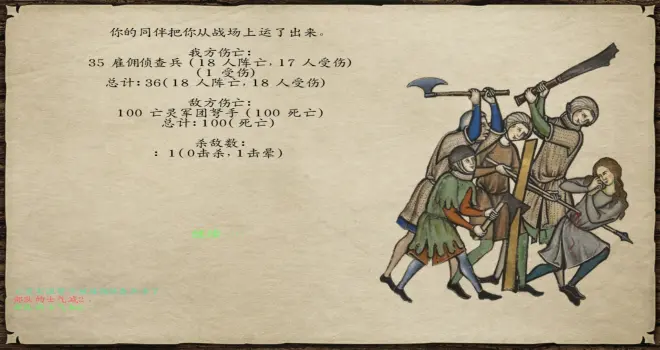 你的同伴把你从战场上运了出来。
我方伤亡:
35 雇佣侦查兵 (18 人阵亡, 17 人受伤)
(1 受伤)
总计: 36(18 人阵亡, 18 人受伤)
敌方伤亡:
100 亡灵军团弩手 (100 死亡)
总计: 100(死亡)
杀敌数:
: 1(0击杀, 1击晕)